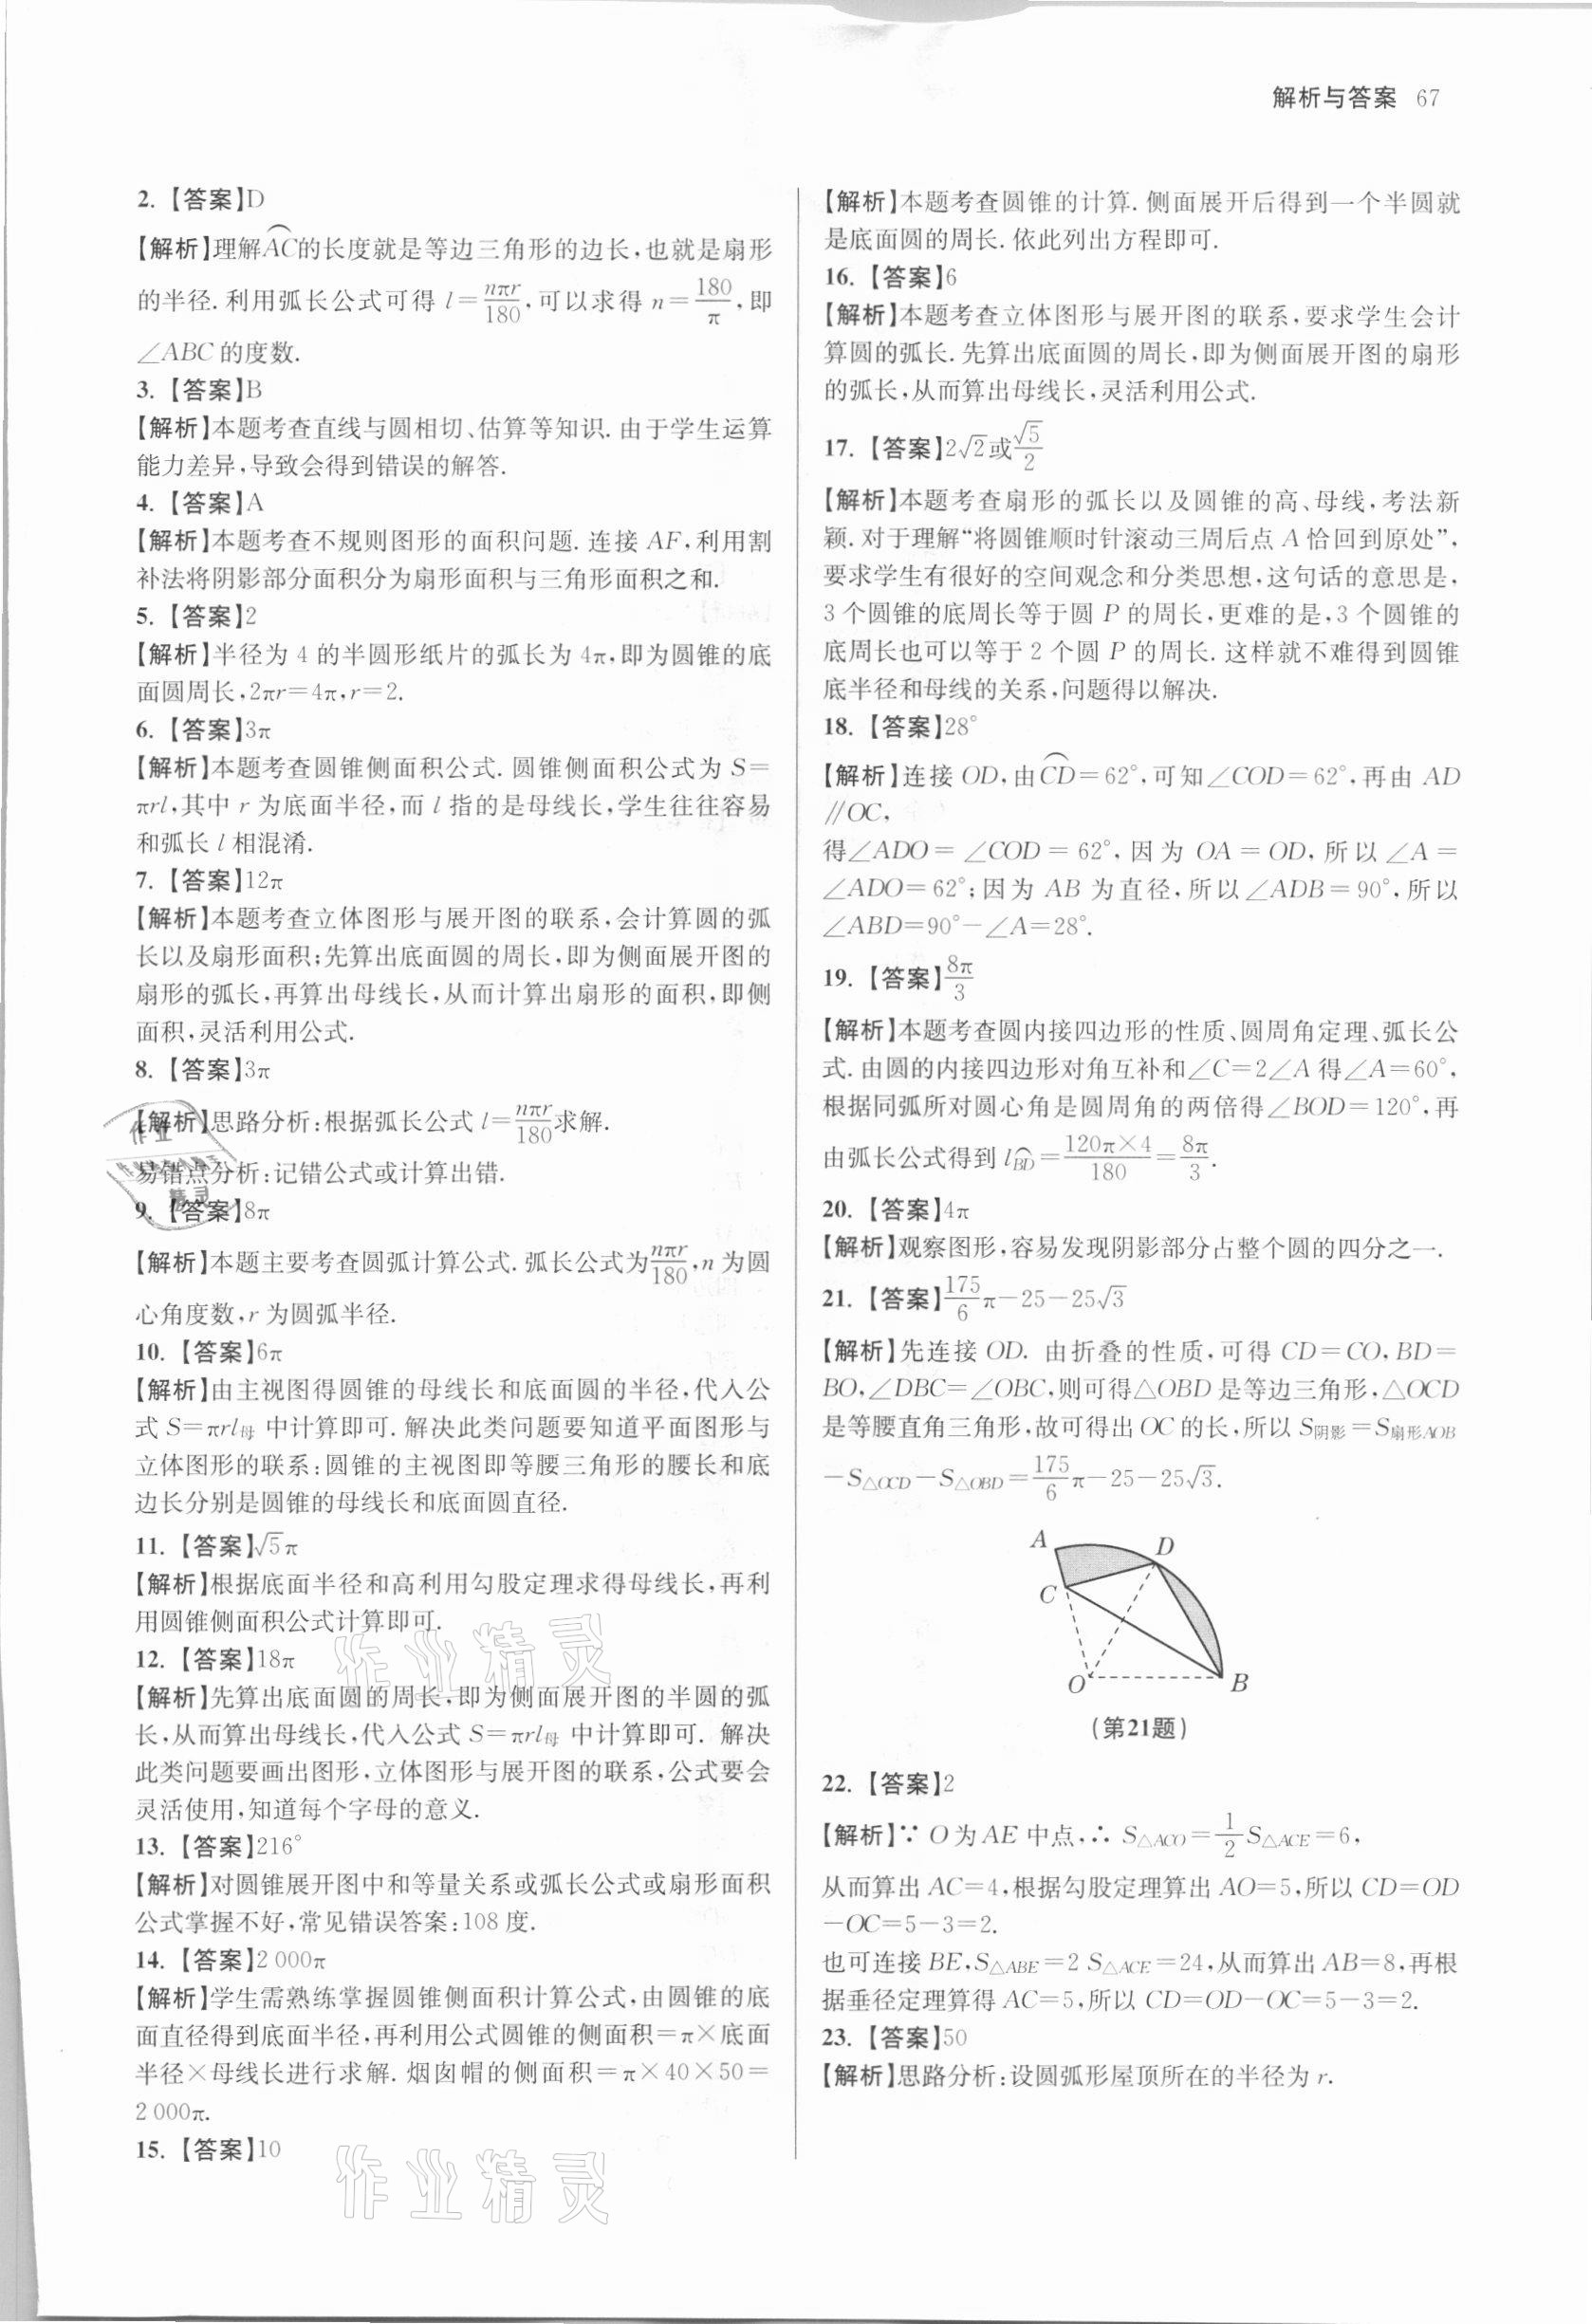 解析与答案 67
2. 【答案】D
【解析】理解AC⌒的长度就是等边三角形的边长,也就是扇形
的半径. 利用弧长公式可得 l=nπr/180,可以求得 n=180/π,即
∠ABC 的度数.
3. 【答案】B
【解析】本题考查直线与圆相切、估算等知识. 由于学生运算
能力差异,导致会得到错误的解答.
4. 【答案】A
【解析】本题考查不规则图形的面积问题. 连接 AF,利用割
补法将阴影部分面积分为扇形面积与三角形面积之和.
5. 【答案】2
【解析】半径为 4 的半圆形纸片的弧长为 4π,即为圆锥的底
面圆周长,2πr=4π,r=2.
6. 【答案】3π
【解析】本题考查圆锥侧面积公式. 圆锥侧面积公式为 S=
πrl,其中 r 为底面半径,而 l 指的是母线长,学生往往容易
和弧长 l 相混淆.
7. 【答案】12π
【解析】本题考查立体图形与展开图的联系,会计算圆的弧
长以及扇形面积;先算出底面圆的周长,即为侧面展开图的
扇形的弧长,再算出母线长,从而计算出扇形的面积,即侧
面积,灵活利用公式.
8. 【答案】3π
【解析】思路分析:根据弧长公式 l=nπr/180求解.
易错点分析:记错公式或计算出错.
9. 【答案】8π
【解析】本题主要考查圆弧计算公式. 弧长公式为nπr/180,n 为圆
心角度数,r 为圆弧半径.
10. 【答案】6π
【解析】由主视图得圆锥的母线长和底面圆的半径,代入公
式 S=πrl母 中计算即可. 解决此类问题要知道平面图形与
立体图形的联系:圆锥的主视图即等腰三角形的腰长和底
边长分别是圆锥的母线长和底面圆直径.
11. 【答案】√5π
【解析】根据底面半径和高利用勾股定理求得母线长,再利
用圆锥侧面积公式计算即可.
12. 【答案】18π
【解析】先算出底面圆的周长,即为侧面展开图的半圆的弧
长,从而算出母线长,代入公式 S=πrl母 中计算即可. 解决
此类问题要画出图形,立体图形与展开图的联系,公式要会
灵活使用,知道每个字母的意义.
13. 【答案】216°
【解析】对圆锥展开图中和等量关系或弧长公式或扇形面积
公式掌握不好,常见错误答案:108 度.
14. 【答案】2 000π
【解析】学生需熟练掌握圆锥侧面积计算公式,由圆锥的底
面直径得到底面半径,再利用公式圆锥的侧面积=π×底面
半径×母线长进行求解. 烟囱帽的侧面积=π×40×50=
2 000π.
15. 【答案】10
【解析】本题考查圆锥的计算. 侧面展开后得到一个半圆就
是底面圆的周长. 依此列出方程即可.
16. 【答案】6
【解析】本题考查立体图形与展开图的联系,要求学生会计
算圆的弧长. 先算出底面圆的周长,即为侧面展开图的扇形
的弧长,从而算出母线长,灵活利用公式.
17. 【答案】2√2或√5/2
【解析】本题考查扇形的弧长以及圆锥的高、母线,考法新
颖. 对于理解“将圆锥顺时针滚动三周后点 A 恰回到原处”,
要求学生有很好的空间观念和分类思想,这句话的意思是,
3 个圆锥的底周长等于圆 P 的周长,更难的是,3 个圆锥的
底周长也可以等于 2 个圆 P 的周长. 这样就不难得到圆锥
底半径和母线的关系,问题得以解决.
18. 【答案】28°
【解析】连接 OD,由CD⌒=62°,可知∠COD=62°,再由 AD
∥OC,
得∠ADO=∠COD=62°,因为 OA=OD,所以∠A=
∠ADO=62°;因为 AB 为直径,所以∠ADB=90°,所以
∠ABD=90°-∠A=28°.
19. 【答案】8π/3
【解析】本题考查圆内接四边形的性质、圆周角定理、弧长公
式. 由圆的内接四边形对角互补和∠C=2∠A 得∠A=60°,
根据同弧所对圆心角是圆周角的两倍得∠BOD=120°,再
由弧长公式得到 lBD⌒=120π×4/180=8π/3.
20. 【答案】4π
【解析】观察图形,容易发现阴影部分占整个圆的四分之一.
21. 【答案】175/6π-25-25√3
【解析】先连接 OD. 由折叠的性质,可得 CD=CO,BD=
BO,∠DBC=∠OBC,则可得△OBD 是等边三角形,△OCD
是等腰直角三角形,故可得出 OC 的长,所以 S阴影=S扇形AOB
-S△OCD-S△OBD=175/6π-25-25√3.
A
D
C
O
B
(第21题)
22. 【答案】2
【解析】∵ O为 AE 中点,∴ S△ACO=1/2S△ACE=6,
从而算出 AC=4,根据勾股定理算出 AO=5,所以 CD=OD
-OC=5-3=2.
也可连接 BE,S△ABE=2 S△ACE=24,从而算出 AB=8,再根
据垂径定理算得 AC=5,所以 CD=OD-OC=5-3=2.
23. 【答案】50
【解析】思路分析:设圆弧形屋顶所在的半径为 r.
作业精灵
作业精灵